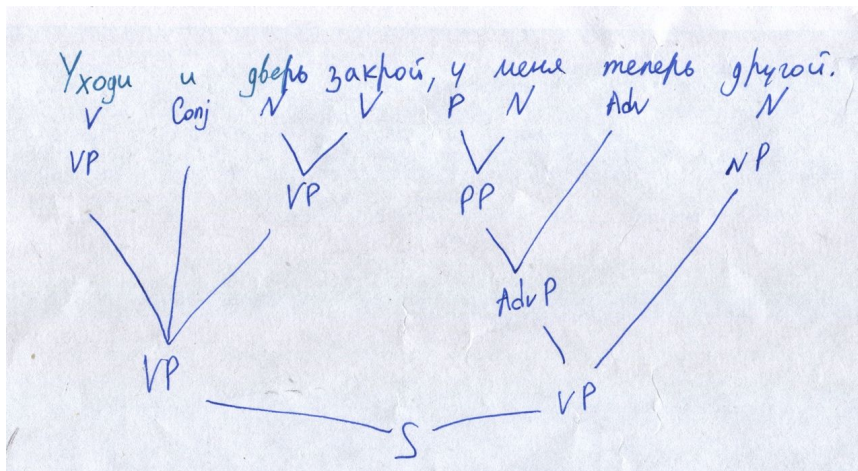 Уходи и дверь закрой, у меня теперь другой.
V Conj N V P N Adv N
VP NP
VP PP
AdvP
VP VP
S